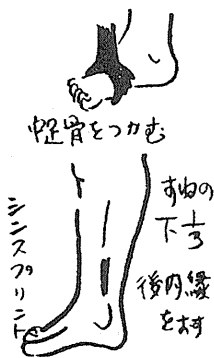 中足骨をつかむ
シンスプリント
すねの
下1/3
後内縁
をおす